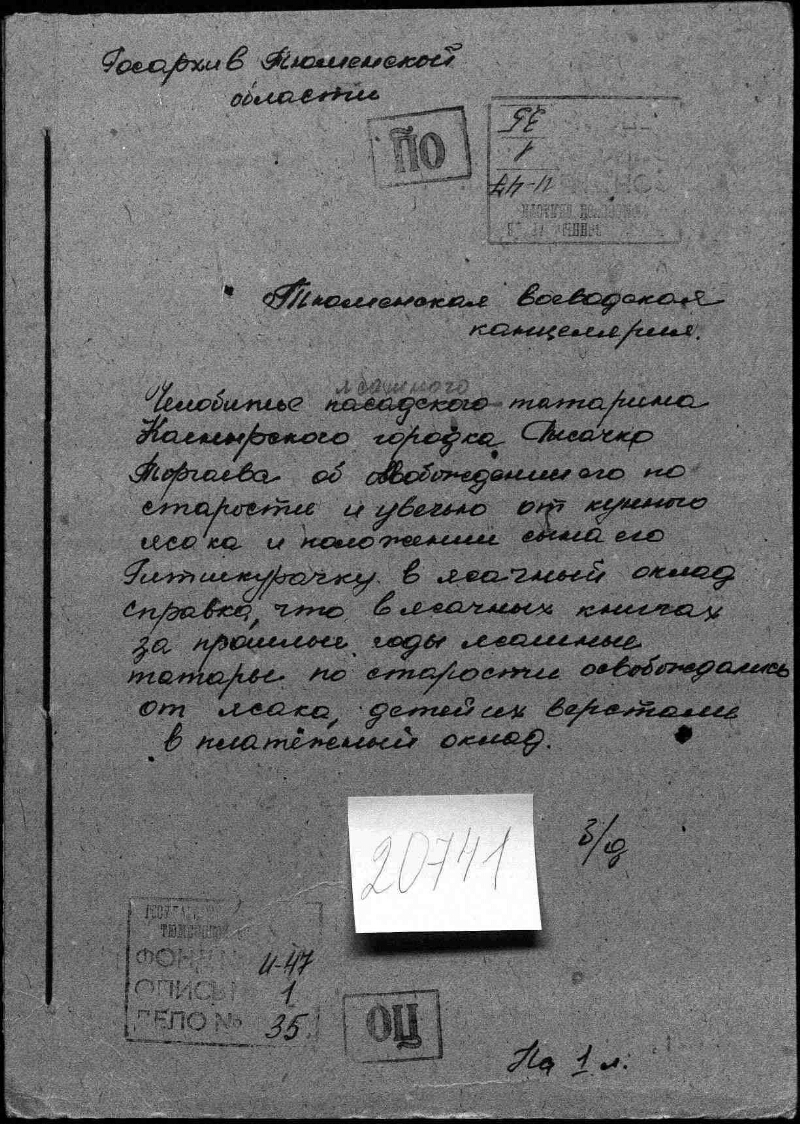 Госархив Тюменской
области
ОЦ
35
1
И-47
Тюменская воеводская
канцелярия.
ясашного
Челобитье посадского татарина
Каскырского городка
Торгаева об освобождении его по
старости и увечью от кунного
ясака и положении сына его
Гитишкурачку в ясачный оклад
справка, что в ясачных книгах
за прошлые годы ясашные
татары по старости освобождались
от ясака, детей их верстали
в платёжный оклад.
20741
З/ц
ФОНД № И-47
ОПИСЬ 1
ДЕЛО № 35.
ОЦ
На 1 л.